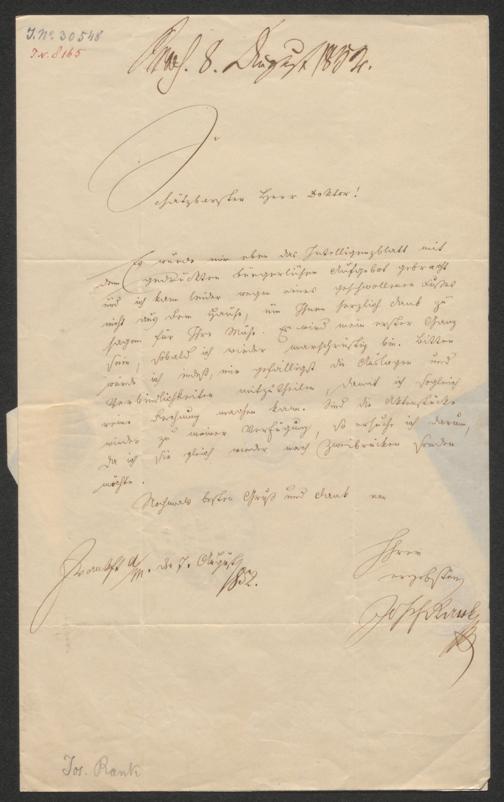 J. No 30548
J. N. 8165
8. August 1852.
Schätzbarster Herr Doktor!
Es wurde mir eben das Intelligenzblatt mit
dem gedruckten bürgerlichen Aufgebot gebracht
und ich kann leider wegen eines geschwollenen Fußes
nicht aus dem Hause, um Ihnen herzlich Dank zu
sagen für Ihre Mühe. Es wird mein erster Gang
sein, sobald ich wieder marschfertig bin. Bitten
werde ich indeß, mir gefälligst die Auslagen und
Verbindlichkeiten mitzutheilen, damit ich sogleich
reine Rechnung machen kann. Sind die Aktenstücke
wieder zu meiner Verfügung, so ersuche ich darum,
da ich sie gleich wieder nach Zweibrücken senden
möchte.
Nochmals besten Gruß und Dank von
Ihrem
ergebensten
Josef Rank
Frankft a/M. den 7. August
1852.
Jos. Rank